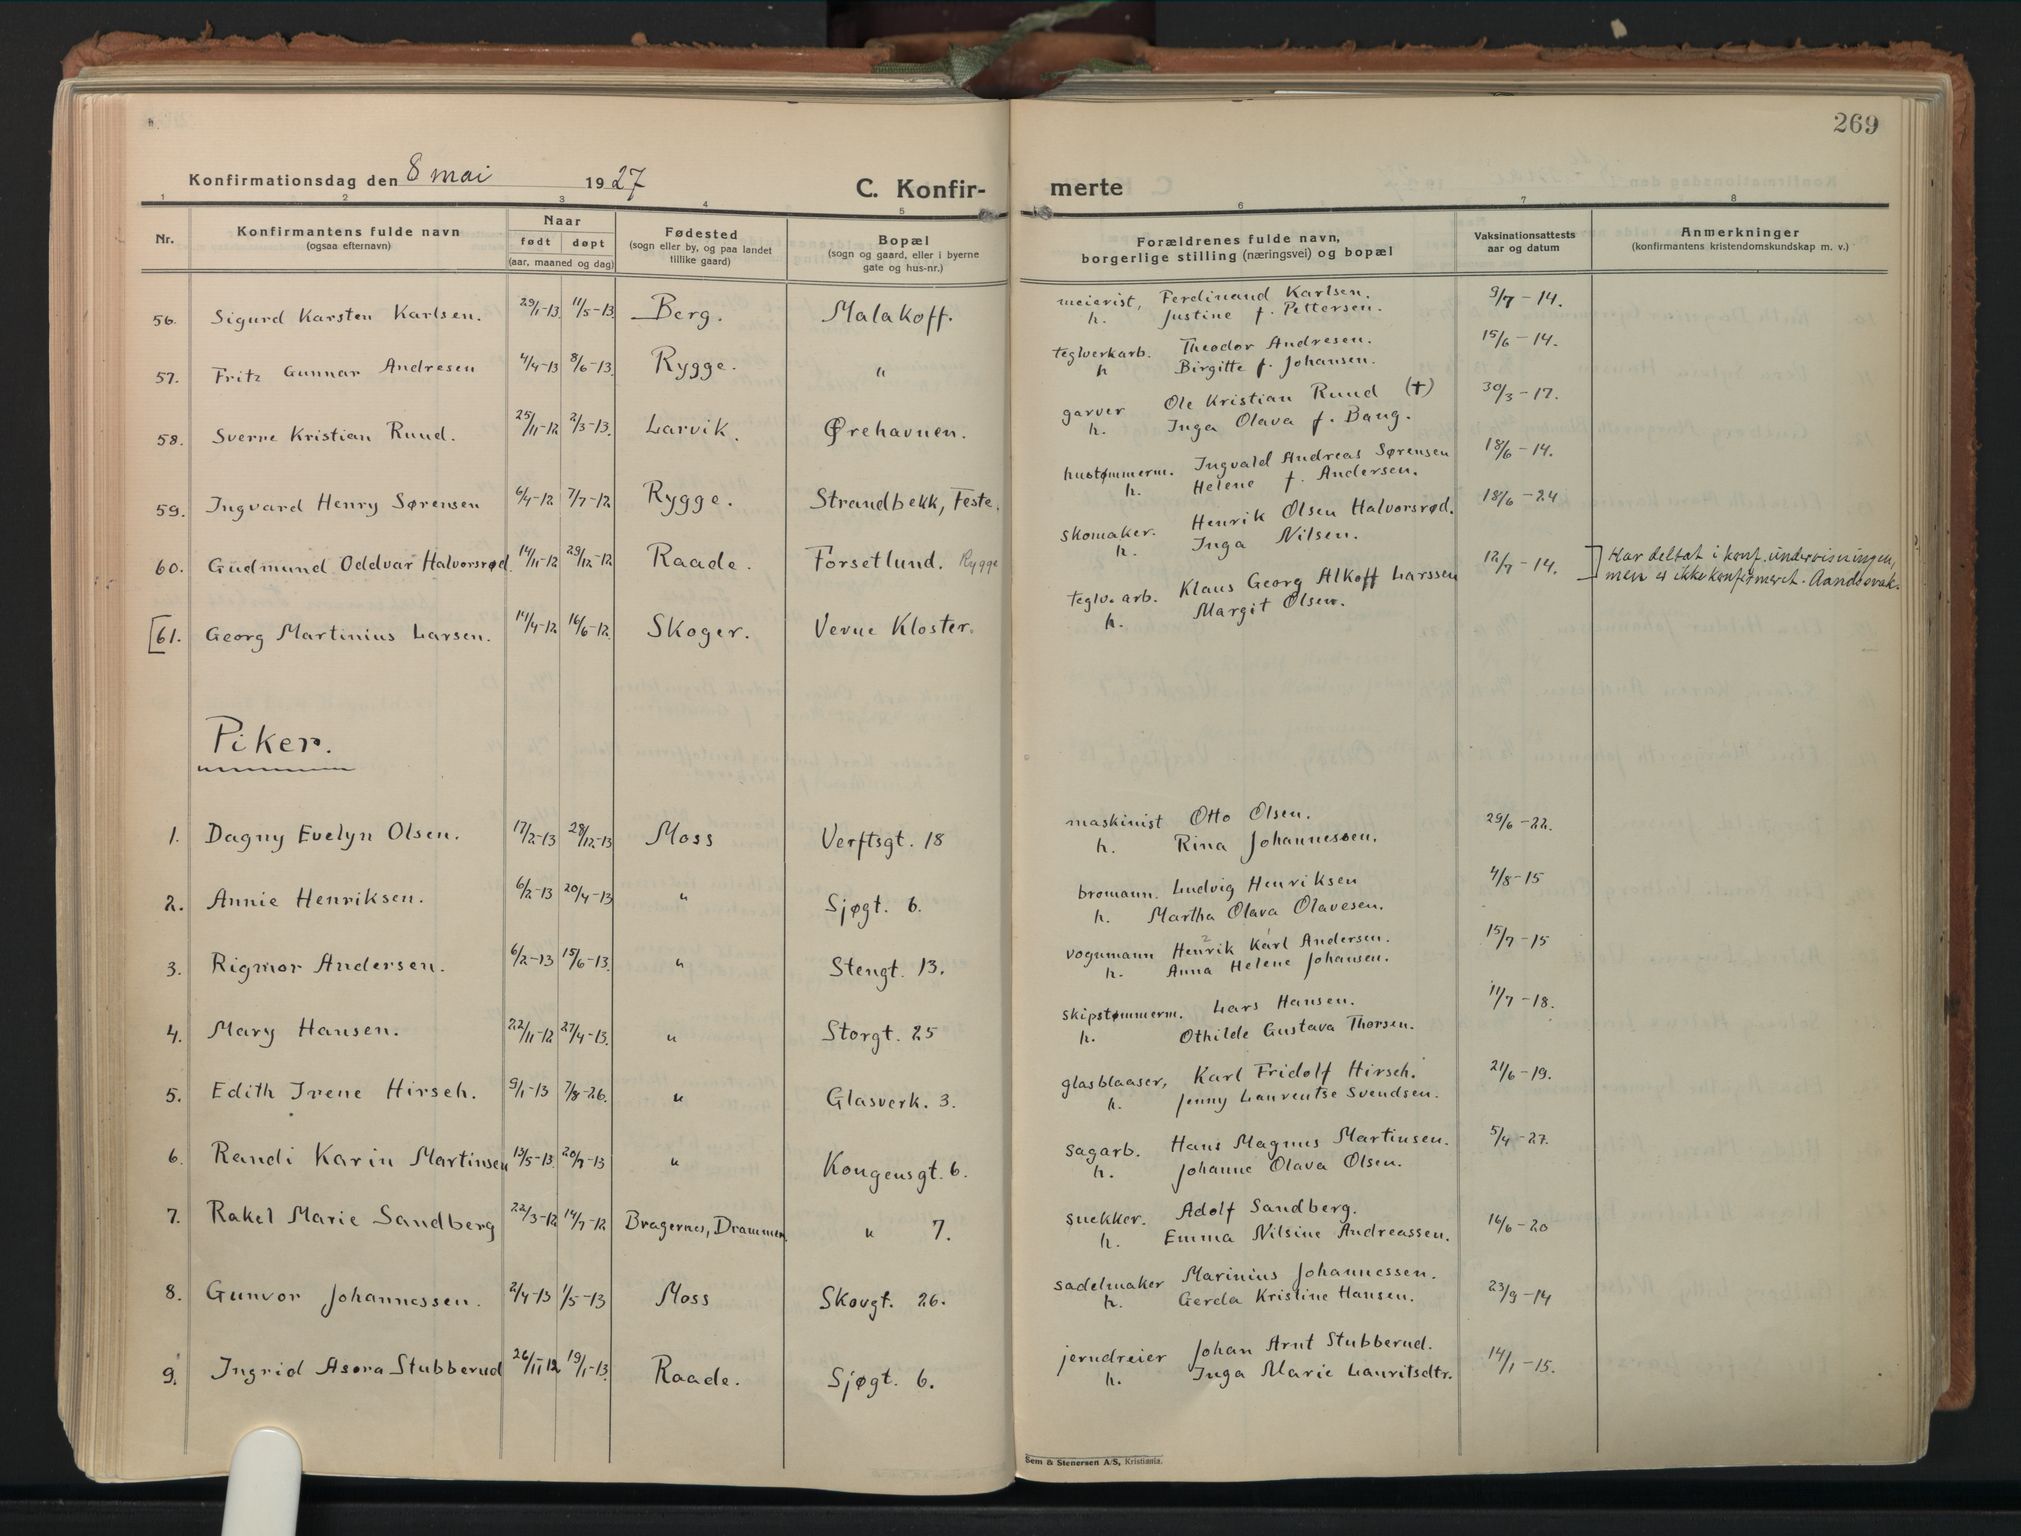 269
Konfirmationsdag den 8 mai 1927
C. Konfir- merte
1 2 3 4 5 6 7 8
Nr.
Konfirmantens fulde navn
(ogsaa efternavn)
Naar
født døpt
(aar, maaned og dag)
Fødested
(sogn eller by, og paa landet
tillike gaard)
Bopæl
(sogn og gaard, eller i byerne
gate og hus-nr.)
Forældrenes fulde navn,
borgerlige stilling (næringsvei) og bopæl
Vaksinationsattests
aar og datum
Anmerkninger
(konfirmantens kristendomskundskap m. v.)
56. Sigurd Karsten Karlsen. 29/1-13 11/5-13 Berg. Malakoff. meierist, Ferdinand Karlsen. 9/7-14.
h. Justine f. Pettersen.
57. Fritz Gunnar Andresen 4/4-13 8/6-13. Rygge. " teglverkarb. Theodor Andresen. 15/6-14.
h Birgitte f. Johansen.
58. Sverre Kristian Ruud. 25/11-12 2/3-13. Larvik. Ørehavnen. garver Ole Kristian Ruud (†) 30/3-17.
h. Inga Olava f. Baug.
59. Ingvard Henry Sørensen 6/4-12 7/7-12 Rygge. Strandbekk, Feste. hustømmerm. Ingvald Andreas Sørensen 18/6-14.
h. Helene f. Andersen.
60. Gudmund Oddvar Halvorsrød. 14/11-12 29/12-12 Raade. Forsetlund. Rygge skomaker. Henrik Olsen Halvorsrød. 18/6-24
h. Inga Nilsen.
[61. Georg Martinius Larsen. 14/4-12 16/6-12. Skoger. Verne Kloster. teglv. arb. Klaus Georg Alkoff Larssen 12/7-14. ] Har deltat i konf. undervisningen,
h. Margit Olsen. men er ikke konfirmeret. Aandssvak.
Piker.
1. Dagny Evelyn Olsen. 17/2-13 28/12-13 Moss Verftsgt. 18 maskinist Otto Olsen. 29/6-22.
h. Rina Johannessen.
2. Annie Henriksen. 6/2-13 20/4-13 " Sjøgt. 6. bromann. Ludvig Henriksen 4/8-15
h. Martha Olava Olavesen.
3. Rigmor Andersen. 6/2-13 15/6-13. " Stengt. 13. vognmann Henrik Karl Andersen. 15/7-15
h. Anna Helene Johansen.
4. Mary Hansen. 22/11-12 27/4-13. " Storgt. 25 skipstømmerm. Lars Hansen. 11/7-18.
h. Othilde Gustava Thorsen.
5. Edith Irene Hirsch. 9/1-13 7/8-26. " Glasverk. 3. glasblaaser, Karl Fridolf Hirsch. 21/6-19.
h. Jenny Laurentse Svendsen.
6. Randi Karin Martinsen 13/5-13. 20/7-13 " Kongensgt. 6. sagarb. Hans Magnus Martinsen. 5/4-27.
h. Johanne Olava Olsen.
7. Rakel Marie Sandberg 22/3-12 14/7-12 Bragernes, Drammen. " 7. snekker. Adolf Sandberg. 16/6-20
h. Emma Nilsine Andreassen.
8. Gunvor Johannessen. 2/4-13 1/5-13 Moss Skovgt. 26. sadelmaker Marinius Johannessen. 23/9-14
h. Gerda Kristine Hansen.
9. Ingrid Asora Stubberud 26/11 12 19/1-13. Raade. Sjøgt. 6. jerndreier Johan Arnt Stubberud. 14/1-15.
h. Inga Marie Lauritsdtr.
Sem & Stenersen A/S, Kristiania.